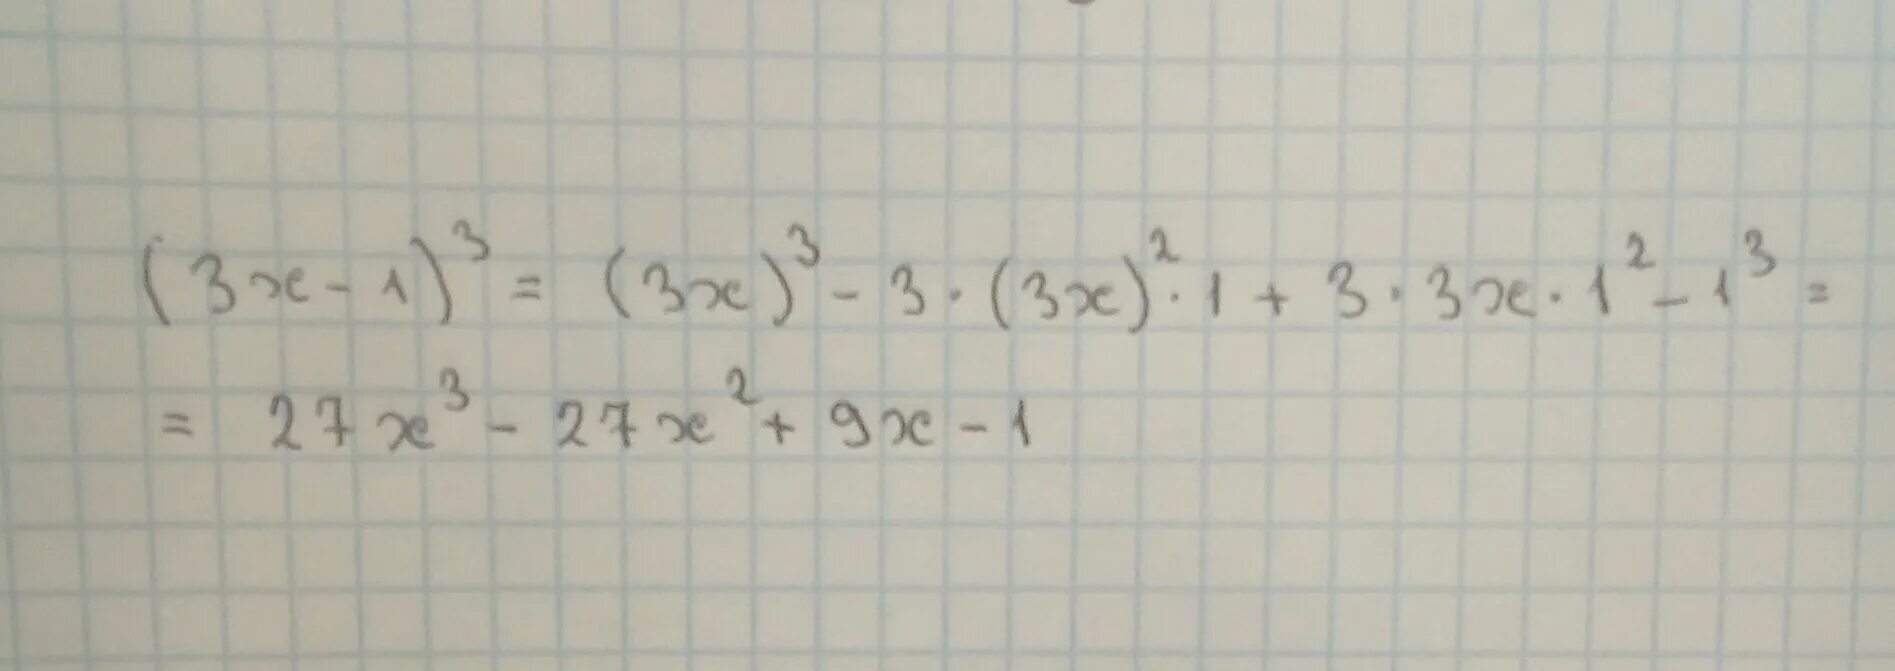 (3x-1)³ = (3x)³ - 3·(3x)²·1 + 3·3x·1² - 1³ =
= 27x³ - 27x² + 9x - 1